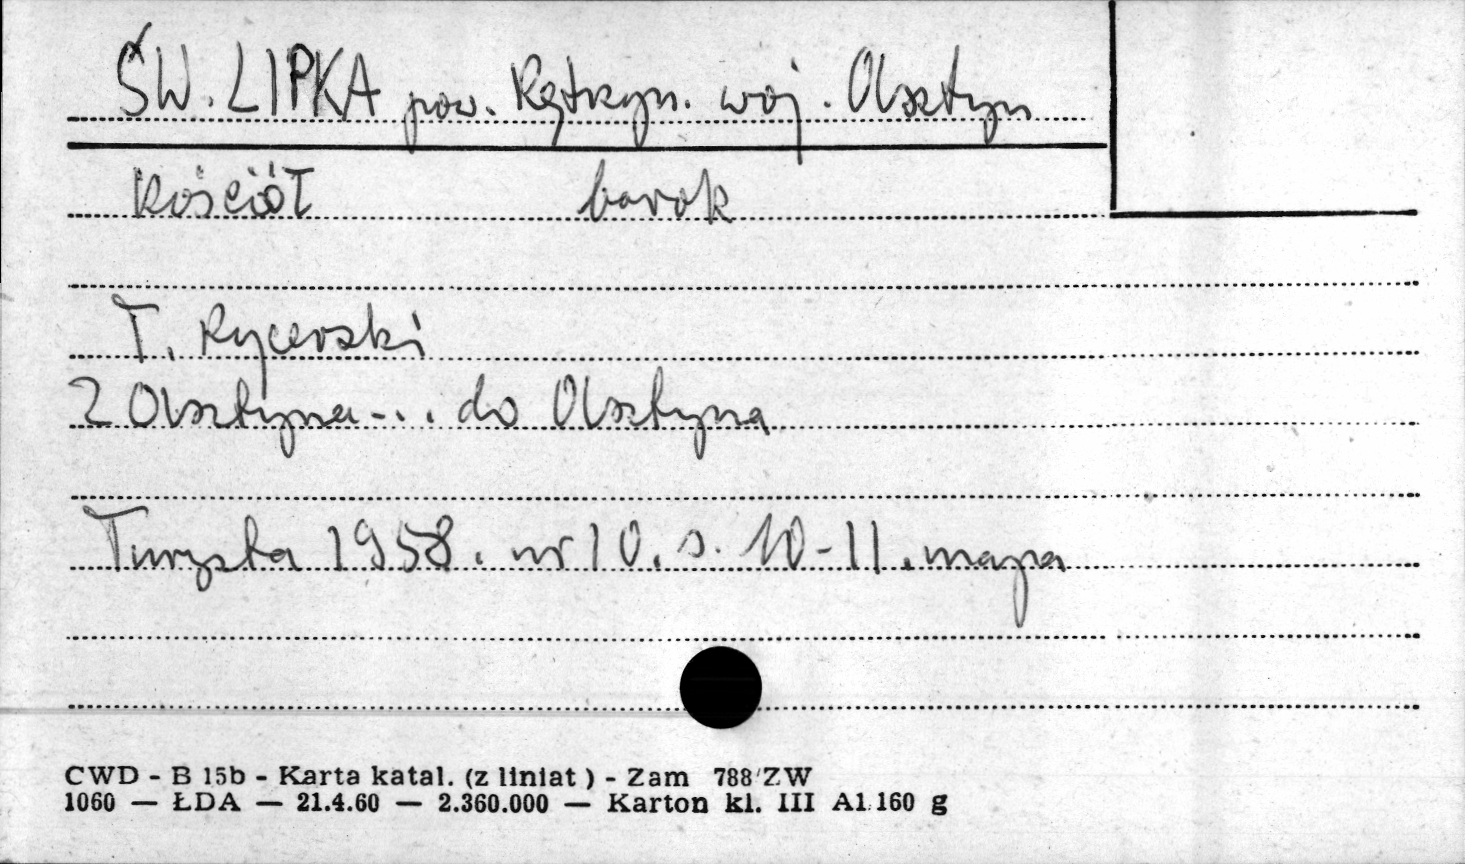 ŚW. LIPKA pow. Kętrzyn. woj. Olsztyn
Kościół barok
T. Rycerski
Z Olsztyna... do Olsztyna
Turysta 1958. nr 10. s. 10-11. mapa
CWD - B 15b - Karta katal. (z liniat) - Zam 788/ZW
1060 — ŁDA — 21.4.60 — 2.360.000 — Karton kl. III A1 160 g